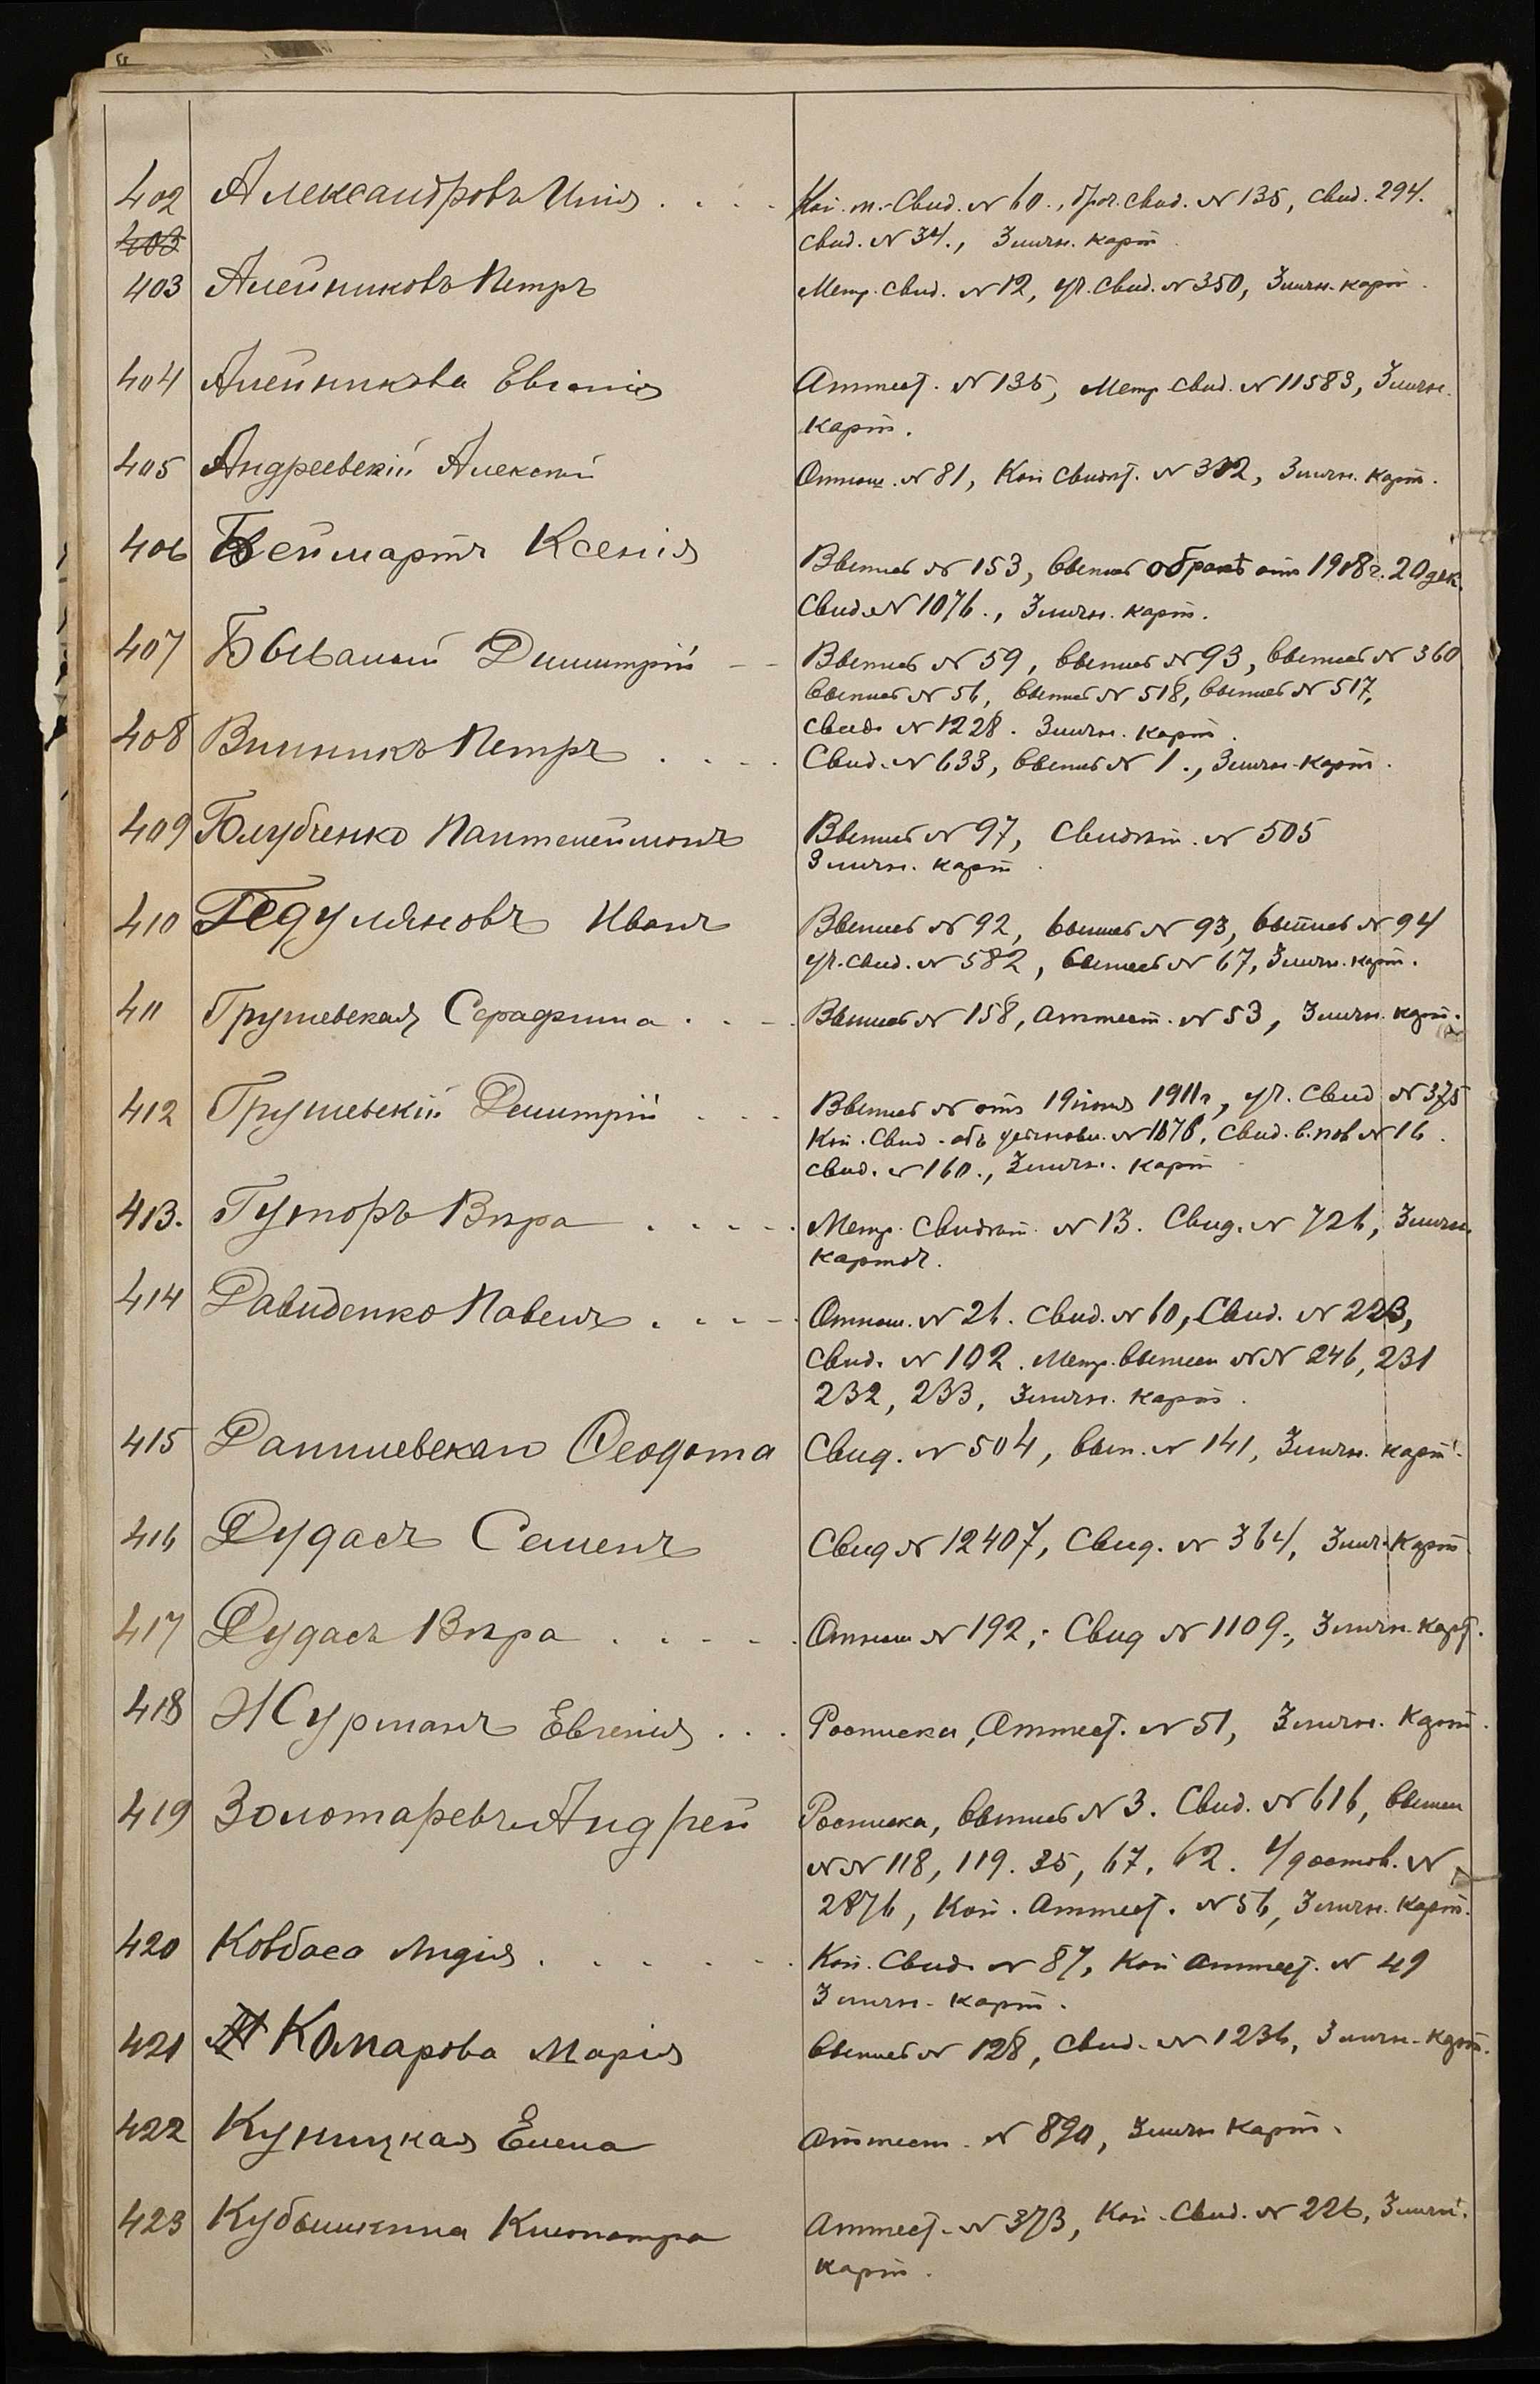 402 Александровъ Илія . . . . Коп. м. Свид. № 60., Проч. свид. № 135, свид. 294.
403
свид. № 34., 3 личн. карт.
403 Алейниковъ Петръ Метр. свид. № 12, уч. свид. № 350, 3 личн. карт.
404 Алейникова Евгенія Аттест. № 135, Метр. свид. № 11583, 3 личн.
карт.
405 Андреевскій Алексѣй Отнош. № 81, Коп. Свидѣт. № 302, 3 личн. карт.
406 Беймартъ Ксенія Выпись № 153, выпись о бракѣ отъ 1908 г. 20 дек.
Свид. № 1076., 3 личн. карт.
407 Бывалый Димитрій Выпись № 59, выпись № 93, выпись № 360
выпись № 56, выпись № 518, выпись № 517,
свид. № 1228. 3 личн. карт.
408 Винникъ Петръ . . . . Свид. № 633, выпись № 1., 3 личн. карт.
409 Голубченко Пантелеймонъ Выпись № 97, Свидѣт. № 505
3 личн. карт.
410 Гедуляновъ Иванъ Выпись № 92, выпись № 93, выпись № 94
уч. свид. № 582, выпись № 67, 3 личн. карт.
411 Грушевская Серафима . . . Выпись № 158, аттест. № 53, 3 личн. карт.
412 Грушевскій Димитрій . . . Выпись № отъ 19 іюня 1911 г, уч. свид № 375
Коп. Свид. объ усыновл. № 1676, свид. в. пов № 16.
свид. № 160., 3 личн. карт.
413. Гуторъ Вѣра . . . . . Метр. Свидѣт. № 13. Свид. № 726, 3 личн.
карточ.
414 Давиденко Павелъ . . . . Отнош. № 26. Свид. № 60, Свид. № 223,
свид. № 102. Метр. выписи №№ 246, 231
232, 233, 3 личн. карт.
415 Данилевская Ѳеодота Свид. № 504, вып. № 141, 3 личн. карт.
416 Дудасъ Семенъ Свид № 12407, Свид. № 364, 3 лич. карт
417 Дудасъ Вѣра . . . . . Отнош № 192, Свид № 1109., 3 личн. карт.
418 Журманъ Евгенія . . . Росписка, Аттест. № 51, 3 личн. карт.
419 Золотаревъ Андрей Росписка, выпись № 3. Свид. № 616, выписи
№№ 118, 119. 35, 67, 62. Удостов. №
2876, Коп. аттест. № 56, 3 личн. карт.
420 Ковбаса Лидія . . . . . . Коп. Свид. № 87, Коп аттест. № 49
3 личн. карт.
421 Комарова Марія выпись № 128, свид. № 1236, 3 личн. карт.
422 Куницкая Елена аттест. № 890, 3 личн карт.
423 Кубышкина Клеопатра Аттест. № 373, Коп. Свид. № 226, 3 личн.
карт.